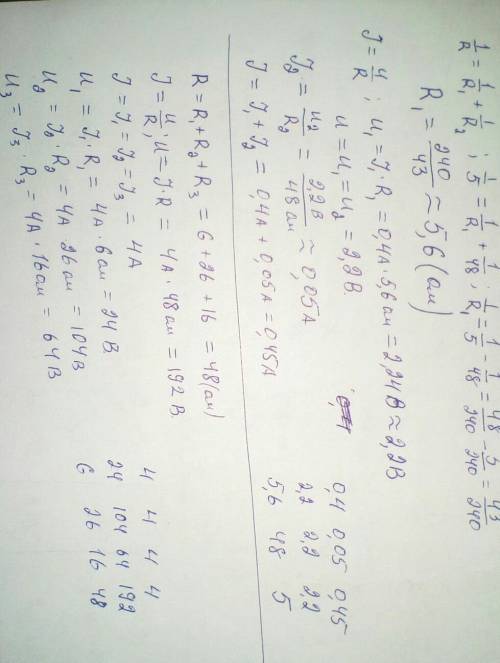 1/R = 1/R₁ + 1/R₂ ; 1/5 = 1/R₁ + 1/48 ; R₁ = 1/5 - 1/48 = 48/240 - 5/240 = 43/240
R₁ = 240/43 ≈ 5,6 (ом)
J = U/R ; U₁ = J₁·R₁ = 0,4А·5,6ом = 2,24В ≈ 2,2В
U = U₁ = U₂ = 2,2В.
J₂ = U₂/R₂ = 2,2В/48ом ≈ 0,05А
J = J₁ + J₂ = 0,4А + 0,05А = 0,45А
0,4 0,05 0,45
2,2 2,2 2,2
5,6 48 5
R = R₁ + R₂ + R₃ = 6 + 26 + 16 = 48(ом)
J = U/R ; U = J·R = 4А·48ом = 192В.
J = J₁ = J₂ = J₃ = 4А
U₁ = J₁·R₁ = 4А·6ом = 24В.
U₂ = J₂·R₂ = 4А 26ом = 104В
U₃ = J₃·R₃ = 4А·16ом = 64В
4 4 4 4
24 104 64 192
6 26 16 48